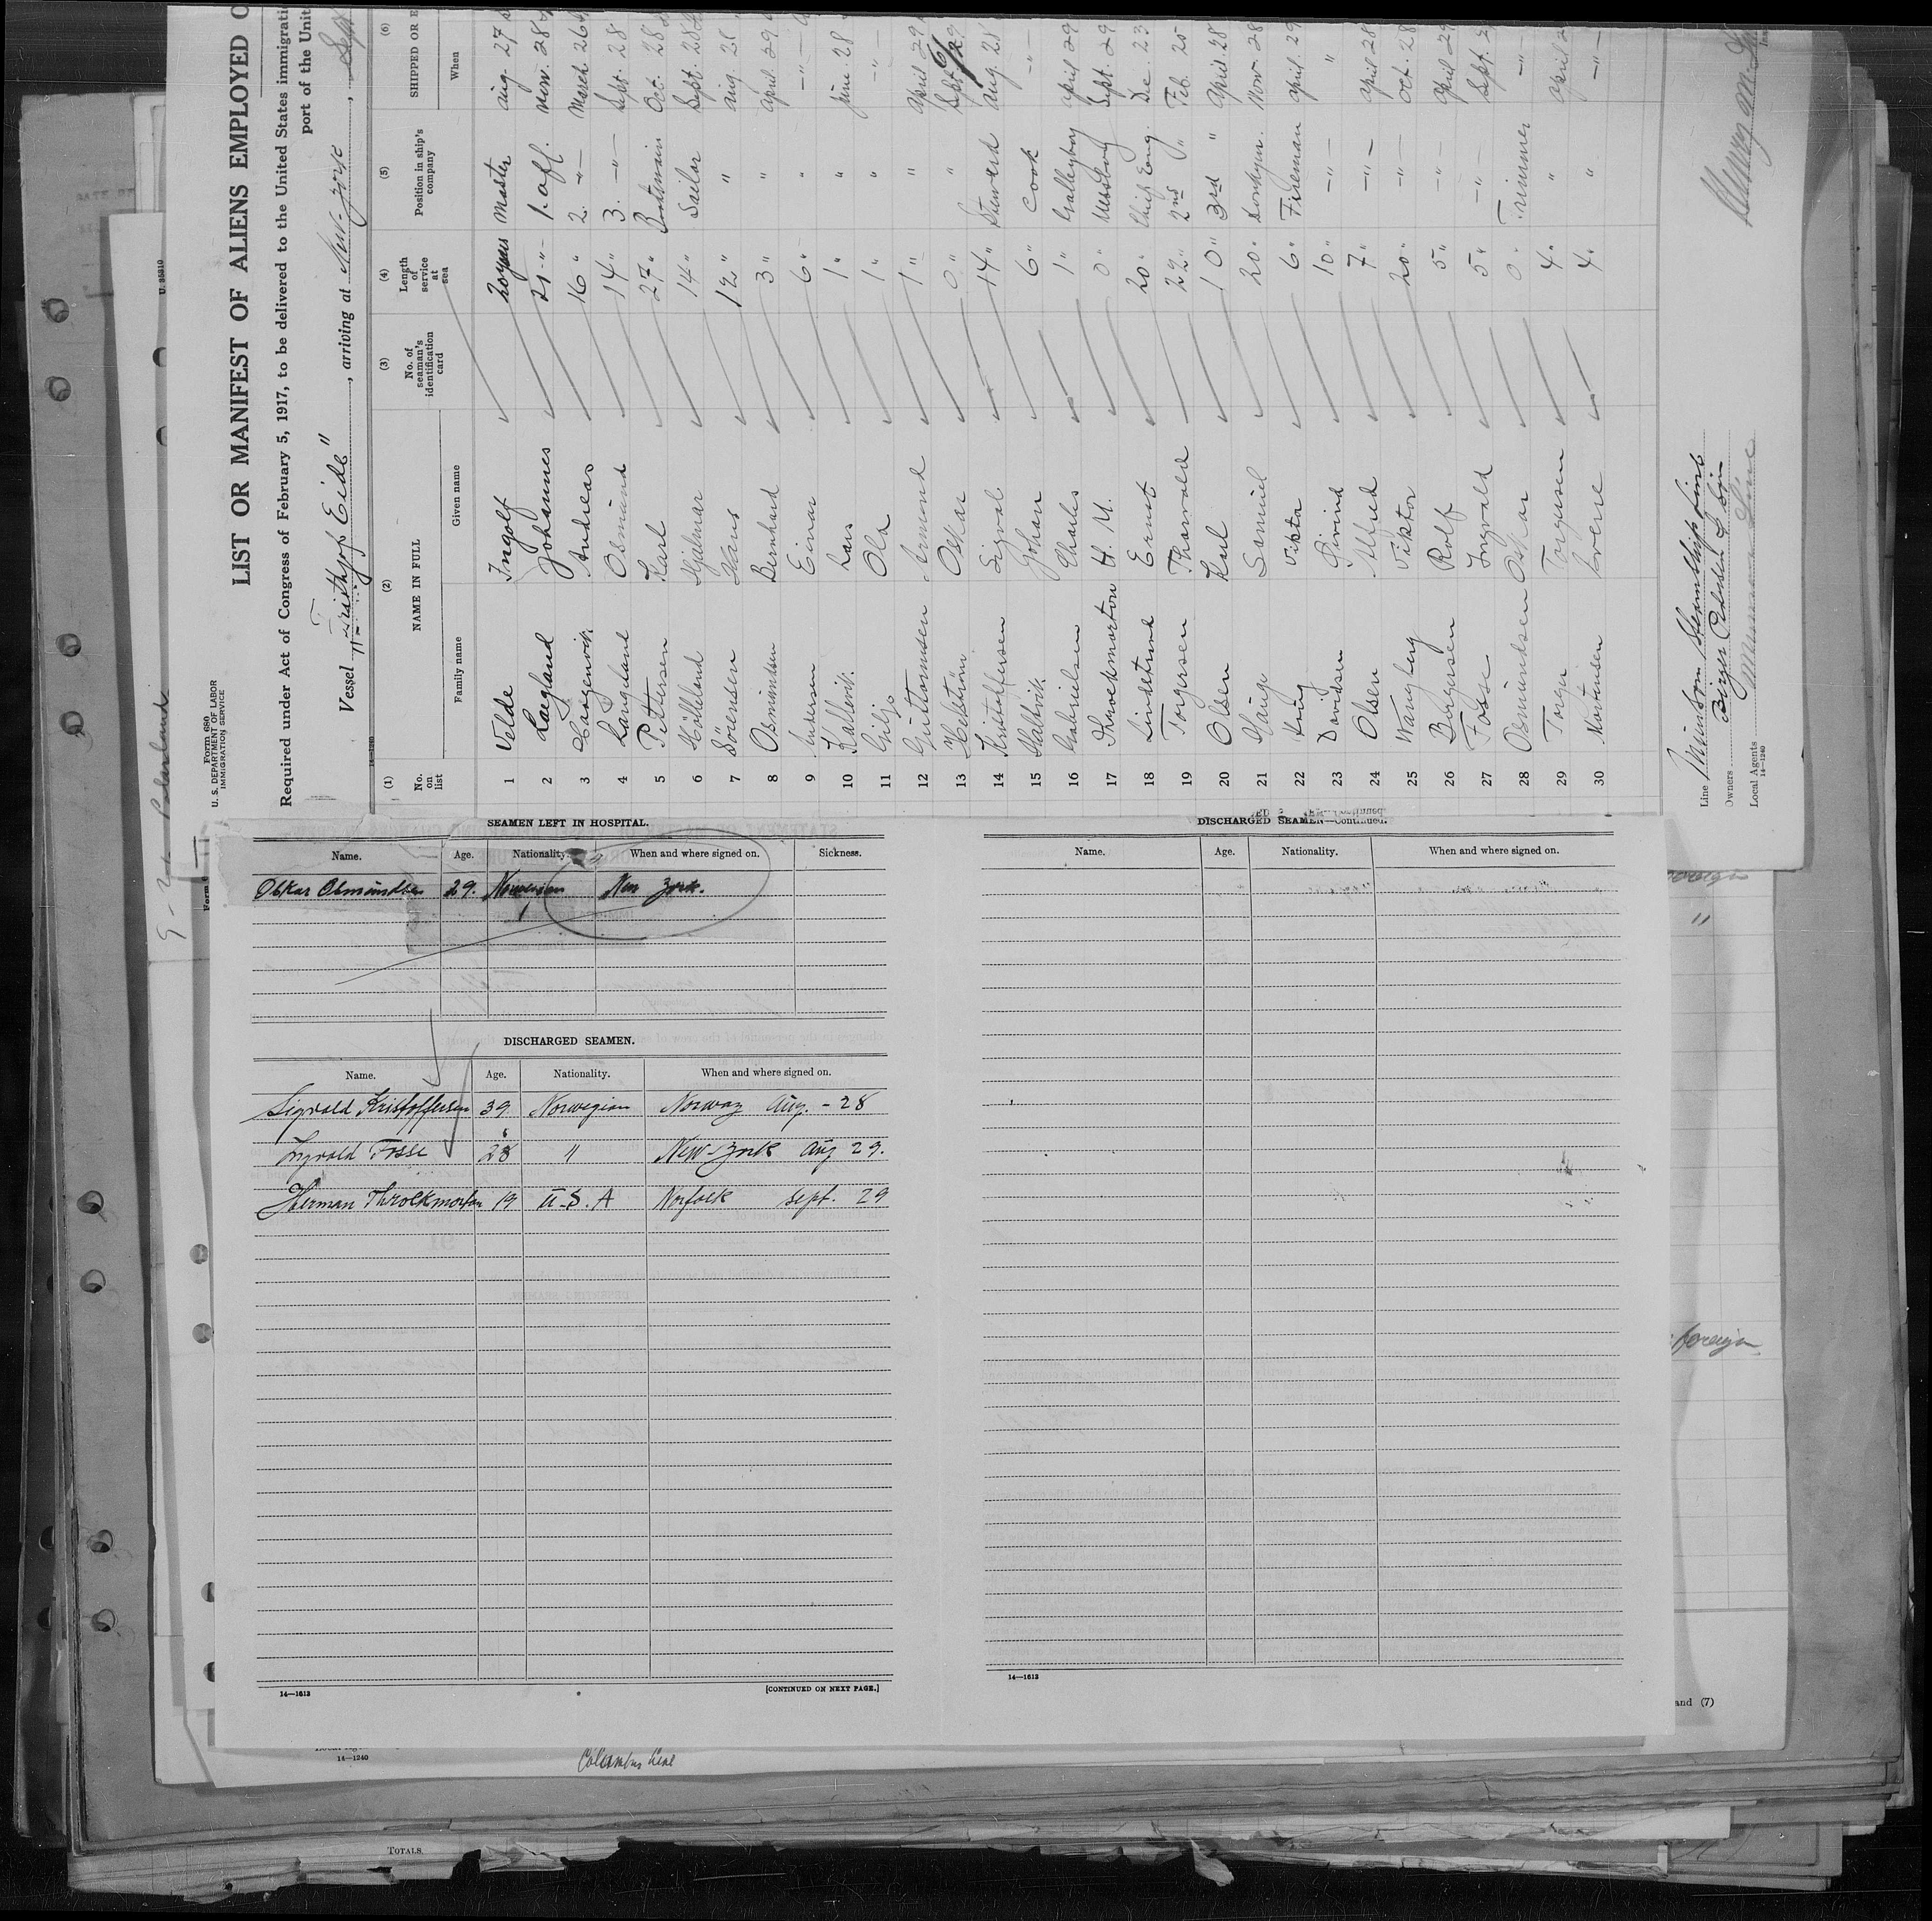 Form 680
U. S. DEPARTMENT OF LABOR
IMMIGRATION SERVICE
U. 35310
LIST OR MANIFEST OF ALIENS EMPLOYED O
Required under Act of Congress of February 5, 1917, to be delivered to the United States immigrati
port of the Unit
Vessel "Frithjof Eide", arriving at New-York, Sept
14-1240
(1) (2) (3) (4) (5) (6)
No. on list NAME IN FULL No. of seaman's identification card Length of service at sea Position in ship's company SHIPPED OR E
Family name Given name When
1 Velde Ingolf 20 years Master Aug. 27
2 Laegland Johannes 21 -"- 1. off. Nov. 28
3 Andreas 16 " 2. -"- March 26
4 Langeland Osmund 14 " 3. -"- Sept. 28
5 Pettersen Karl 27 " Boatswain Oct. 28
6 Hölland Hjalmar 14 " Sailor Sept. 28
7 Sörensen Hans 12 " " Aug. 28
8 Osmundsen Bernhard 3 " " April 29
9 Andersen Einar 6 " " -"-
10 Kallevik Lars 1 " " June 28
11 Giljo Ola 1 " " -"-
12 Armond 1 " " April 29
13 Helström Oskar 0 " " Sept 29
14 Kristoffersen Sigval 14 " Steward Aug. 28
15 Johan 6 " Cook -"-
16 Gabrielsen Charles 1 " Galleyboy April 29
17 Throckmorton H. M. 0 " Messboy Sept. 29
18 Lindstrand Ernst 20 " Chief Eng. De 23
19 Torgersen Tharvald 22 " 2nd " Feb. 25
20 Olsen Karl 10 " 3rd " April 28
21 Hauge Samuel 20 " Donkeym. Nov. 28
22 6 " Fireman April 29
23 Davidsen Eivind 10 " -"- "
24 Olsen Alfred 7 " -"- April 28
25 Wangberg Viktor 20 " -"- Oct. 28
26 Birgersen Rolf 5 " -"- April 29
27 Fosse Ingvald 5 " -"- Sept. 2
28 Osmundsen Oskar 0 " Trimmer -"-
29 Torge Torgersen 4 " " April 2
30 Martinsen 4 " " -"-
Line Munson Steamship Line
Owners Birger Olsen & Sön
Local Agents Munson Line
14-1240
SEAMEN LEFT IN HOSPITAL.
Name. Age. Nationality. When and where signed on. Sickness.
Oskar Osmundsen 29. Norwegian New York.
DISCHARGED SEAMEN.
Name. Age. Nationality. When and where signed on.
Sigvald Kristoffersen 39 Norwegian Norway Aug. - 28
Ingvald Fosse 28 " New-York Aug 29.
Herman Throckmorton 19 U.S.A Norfolk Sept. 29
14—1613
[CONTINUED ON NEXT PAGE.]
DISCHARGED SEAMEN—Continued.
Name. Age. Nationality. When and where signed on.
14—1613
"
foreign
and (7)
14—1240
Columbus Line
TOTALS.